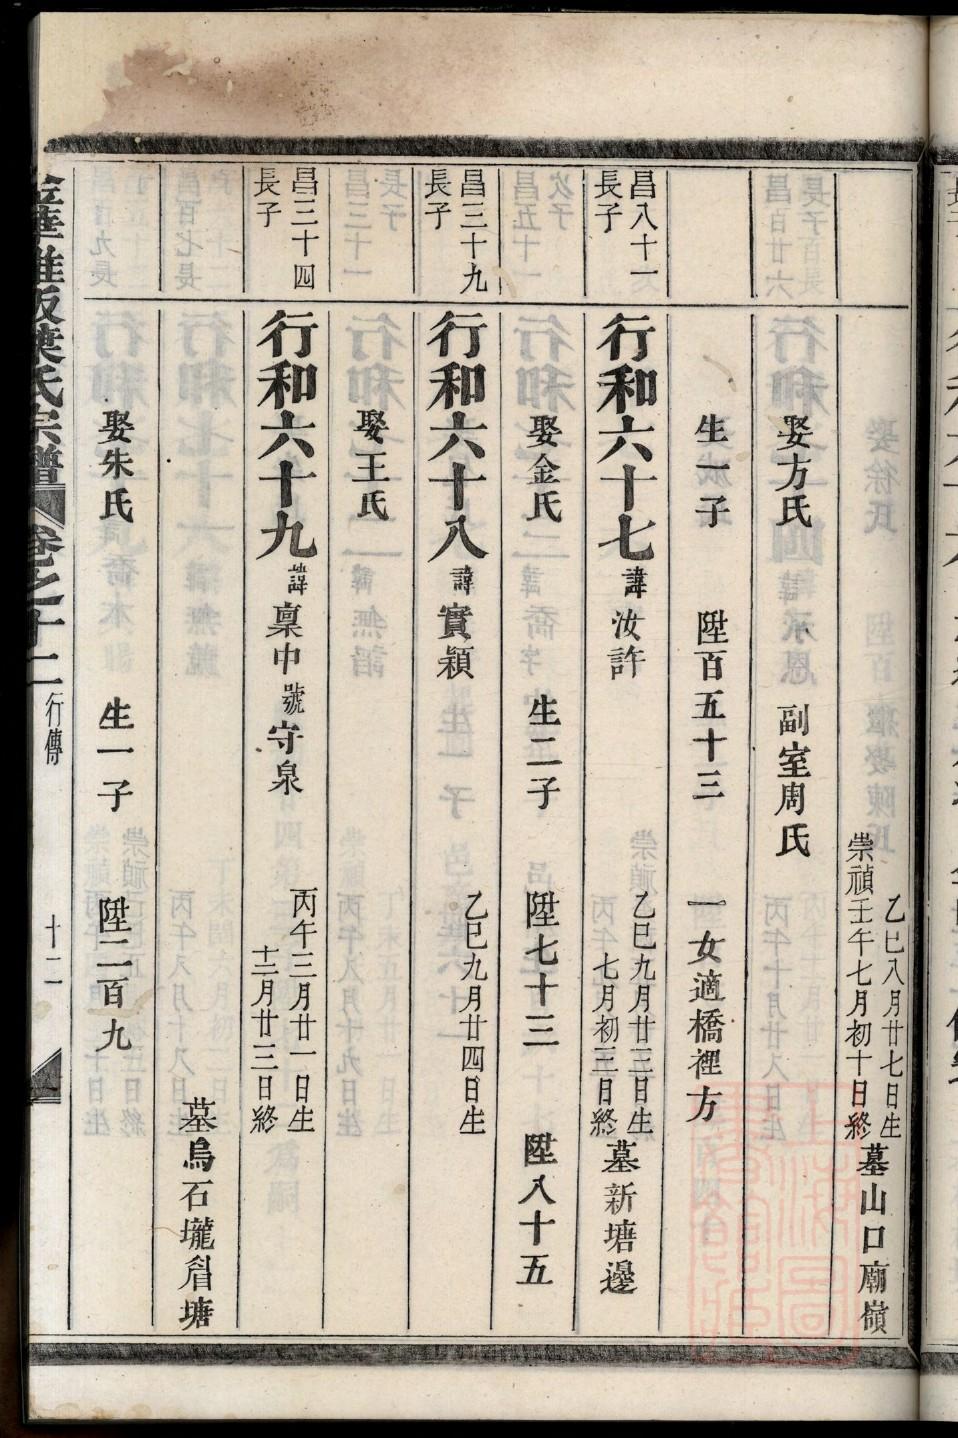 乙巳八月廿七日生
崇禎壬午七月初十日終
墓山口廟嶺
娶方氏 副室周氏
生一子 陞百五十三 一女適橋裡方
昌八十一
長子
行和六十七 諱汝許
乙巳九月廿三日生
七月初三日終
墓新塘邊
娶金氏 生二子 陞七十三 陞八十五
昌三十九
長子
行和六十八 諱實穎
乙巳九月廿四日生
娶王氏
昌三十四
長子
行和六十九 諱稟中 號守泉
丙午三月廿一日生
十二月廿三日終
墓烏石壠塘
娶朱氏 生一子 陞二百九
葉氏宗譜 卷之十二 行傳 十二